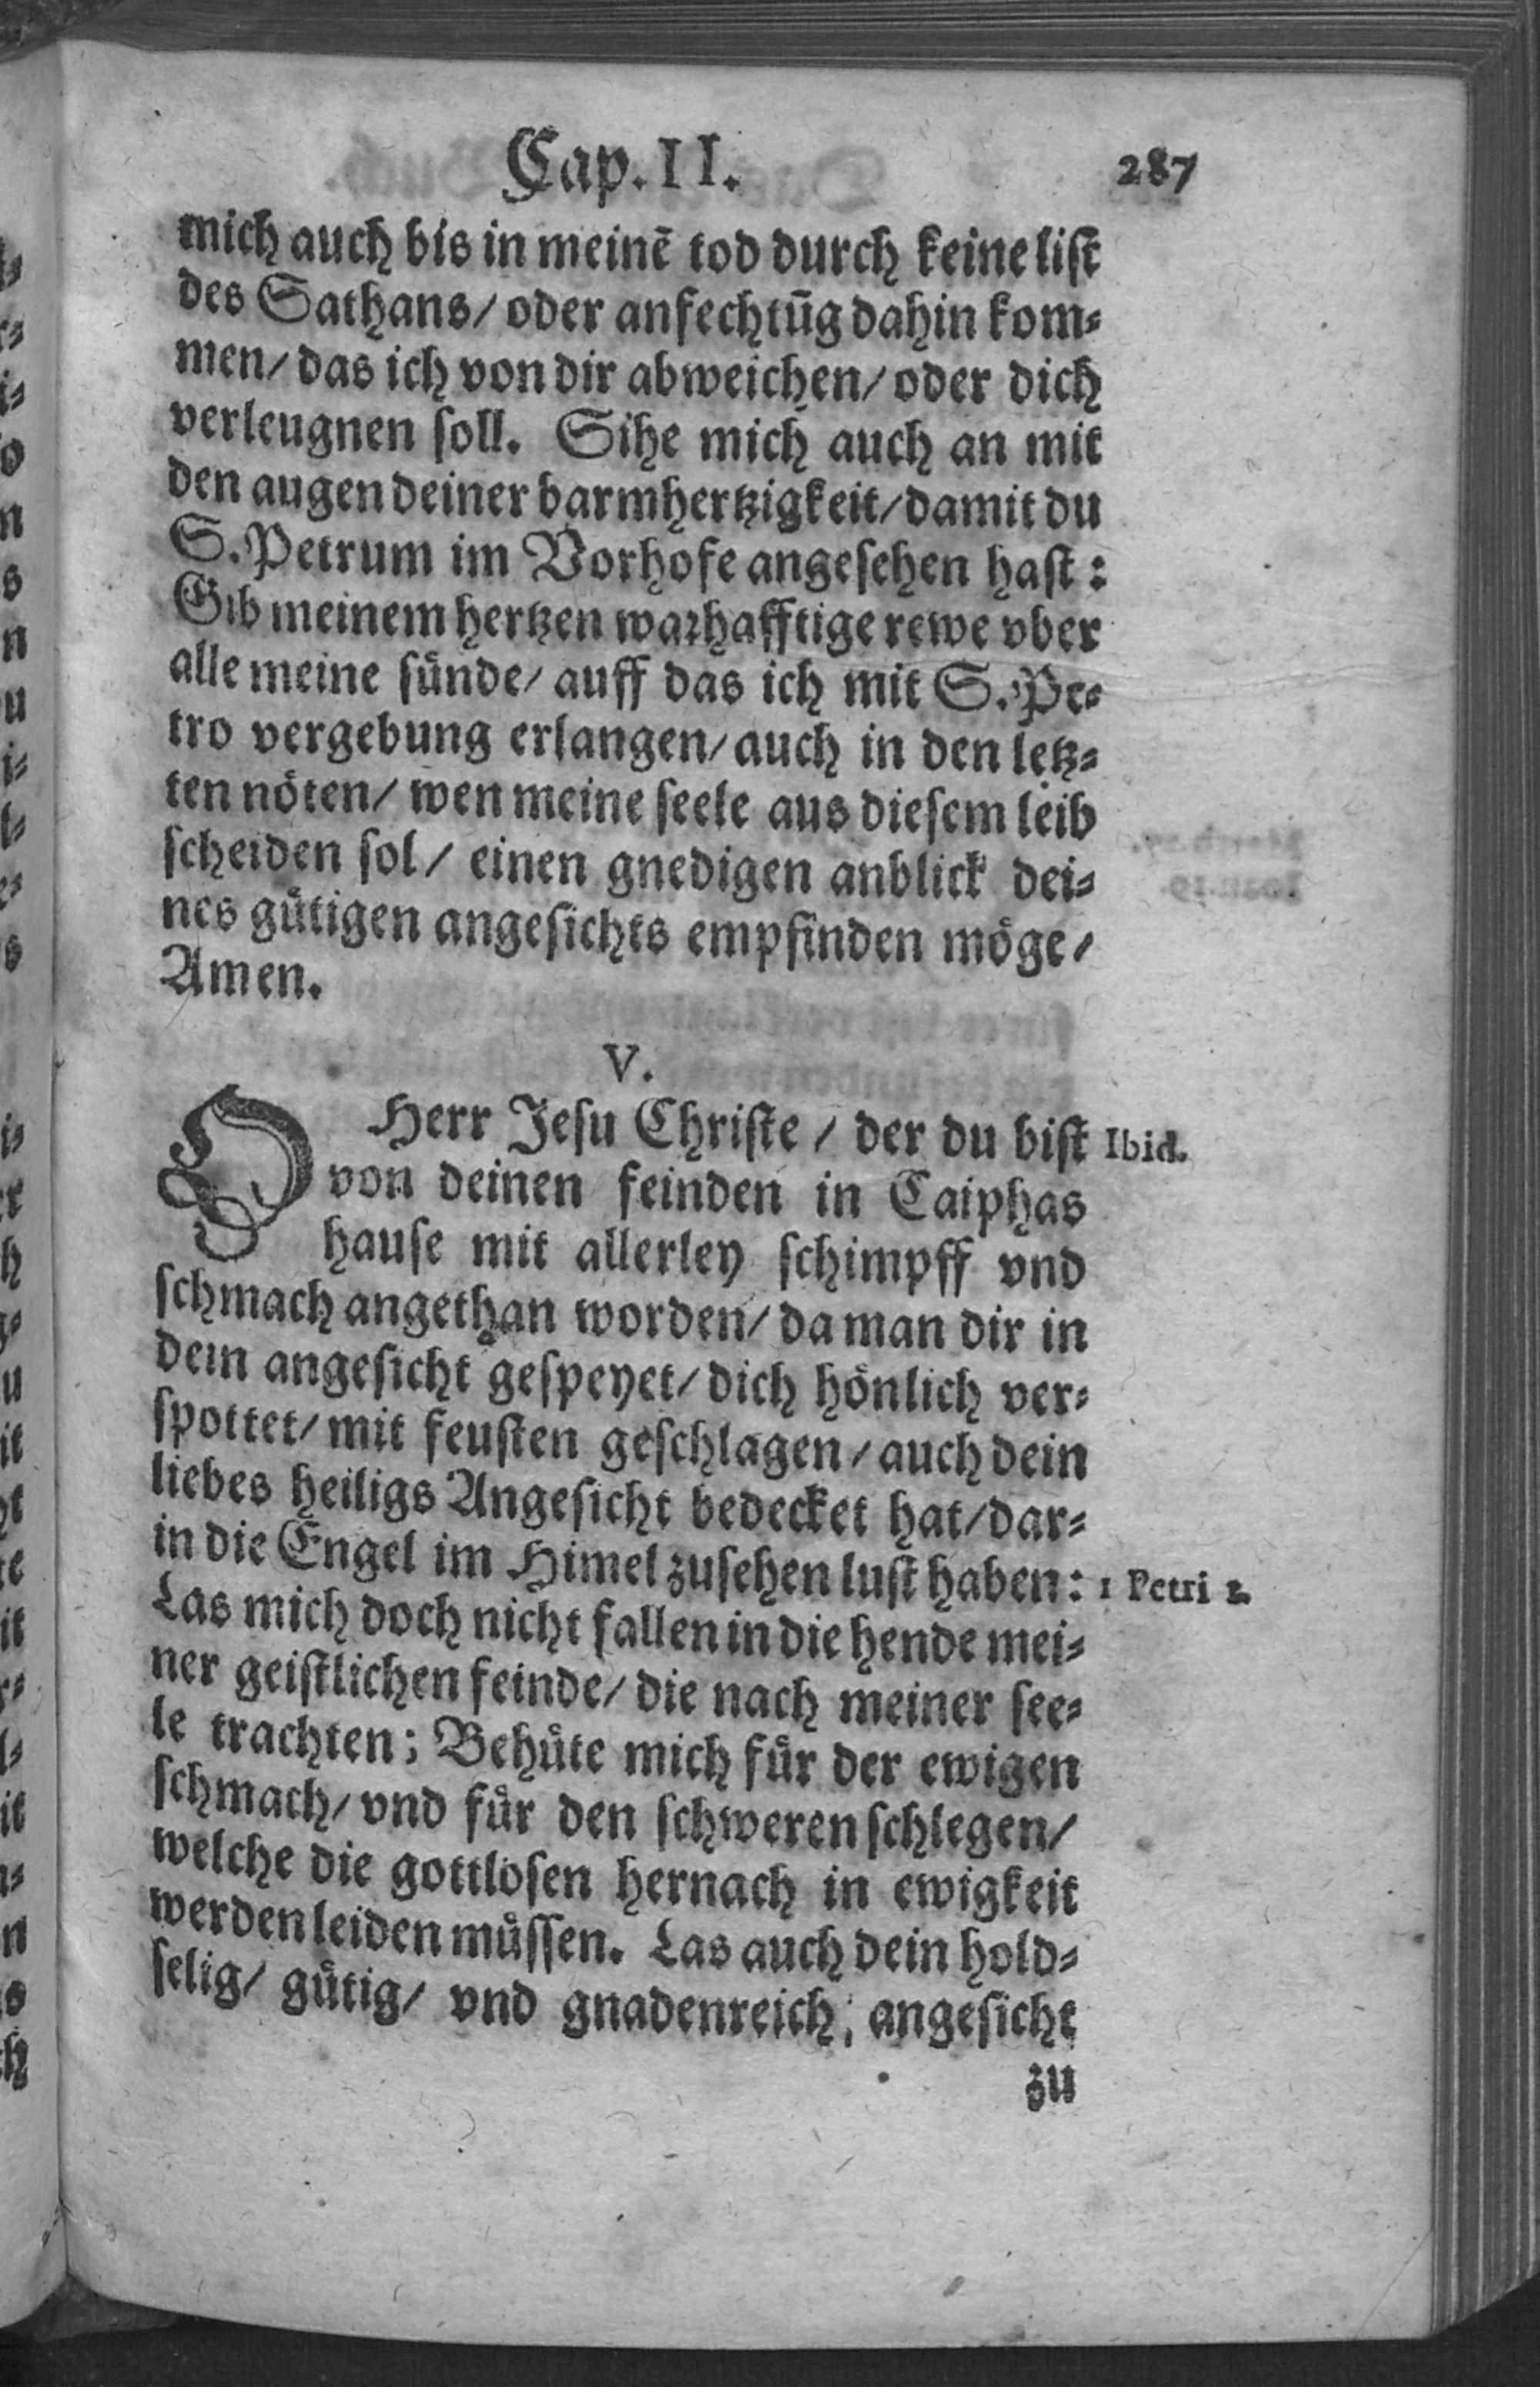 Cap. II.
287
mich auch bis in meinē tod durch keine list
des Sathans/ oder anfechtūg dahin kom⸗
men/ das ich von dir abweichen/ oder dich
verleugnen soll. Sihe mich auch an mit
den augen deiner barmhertzigkeit/ damit du
S. Petrum im Vorhofe angesehen hast:
Gib meinem hertzen warhafftige rewe vber
alle meine sünde/ auff das ich mit S. Pe⸗
tro vergebung erlangen/ auch in den letz⸗
ten nöten/ wen meine seele aus diesem leib
scheiden sol/ einen gnedigen anblick dei⸗
nes gütigen angesichts empfinden möge/
Amen.
V.
O Herr Jesu Christe/ der du bist
Ibid.
von deinen feinden in Caiphas
hause mit allerley schimpff vnd
schmach angethan worden/ da man dir in
dein angesicht gespeyet/ dich hönlich ver⸗
spottet/ mit feusten geschlagen/ auch dein
liebes heiligs Angesicht bedecket hat/ dar⸗
in die Engel im Himel zusehen lust haben:
1 Petri 1.
Las mich doch nicht fallen in die hende mei⸗
ner geistlichen feinde/ die nach meiner see⸗
le trachten; Behüte mich für der ewigen
schmach/ vnd für den schweren schlegen/
welche die gottlosen hernach in ewigkeit
werden leiden müssen. Las auch dein hold⸗
selig/ gütig/ vnd gnadenreich, angesicht
zu